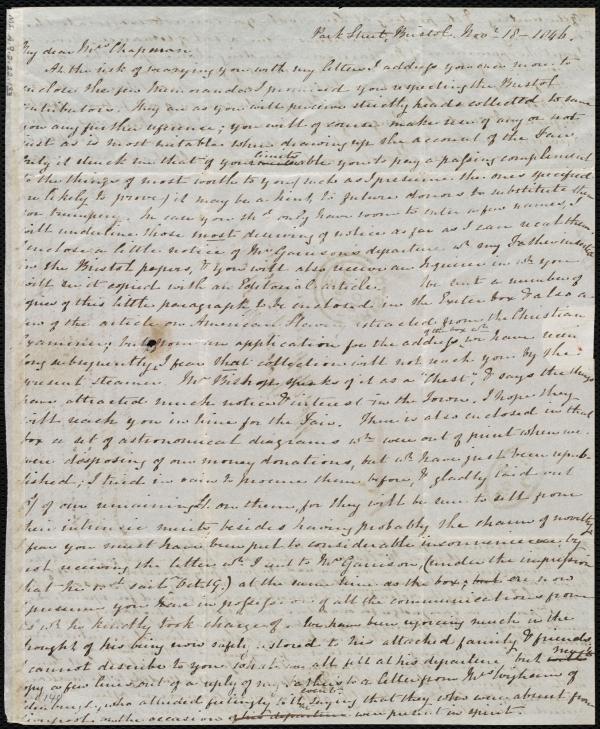 Park Street, Bristol. Novr 18 - 1846.
My dear Mrs Chapman.
At the risk of wearying you with my letters I address you once more to
enclose the few Memoranda I promised you respecting the Bristol
contributors. They are as you will perceive strictly heads collected to save
you any further reference; you will of course make use of any or not
just as is most suitable when drawing up the account of the Fair.
Only it struck me that if your limits enable you to pay a passing compliment
to the things of most worth to you (such as I presume the ones specified
are likely to prove) it may be a hint to future donors to substitute them
for trumpery. In case you shd only have room to enter a few names, I
will underline those most deserving of notice as far as I can recal them.
I enclose a little notice of Mr Garrison's departure wh my Father inserted
in the Bristol papers, & you will also receive an Inquirer in wh you
will see it copied with an Editorial article. We sent a number of
copies of this little paragraph to be enclosed in the Exeter box & also a
few of the article on American Slavery extracted from the Christian
Examiner; but from an application for the address of the box wh we have seen
long subsequently, I fear that collection will not reach you by the
present steamer. Mr Bishop speaks of it as a "Chest", & says the things
have attracted much notice & interest in the Town. I hope they
will reach you in time for the Fair. There is also enclosed in that
box a set of astronomical diagrams wh were out of print when we
were disposing of our money donations, but wh have just been repub-
lished; I tried in vain to procure them before, & gladly laid out
of our remaining on them, for they will be sure to sell from
their intrinsic merits besides having probably the charm of novelty.
I fear you must have been put to considerable inconvenience by
not receiving the letter wh I sent to Mr Garrison, (under the impression
that he wd sail Oct 19.) at the same time as the box; but are now
I presume you have in possession of all the communications from
us wh he kindly took charge of. We have been rejoicing much in the
thought of his being now safely restored to his attached family & friends,
I cannot describe to you what we all felt at his departure, but
copy a few lines out of a reply of my father's to a letter from Mr Wigham of
Edinburgh, who alluded feelingly to the event, saying that they who were absent from
Liverpool on the occasion of his departure were present in spirit.